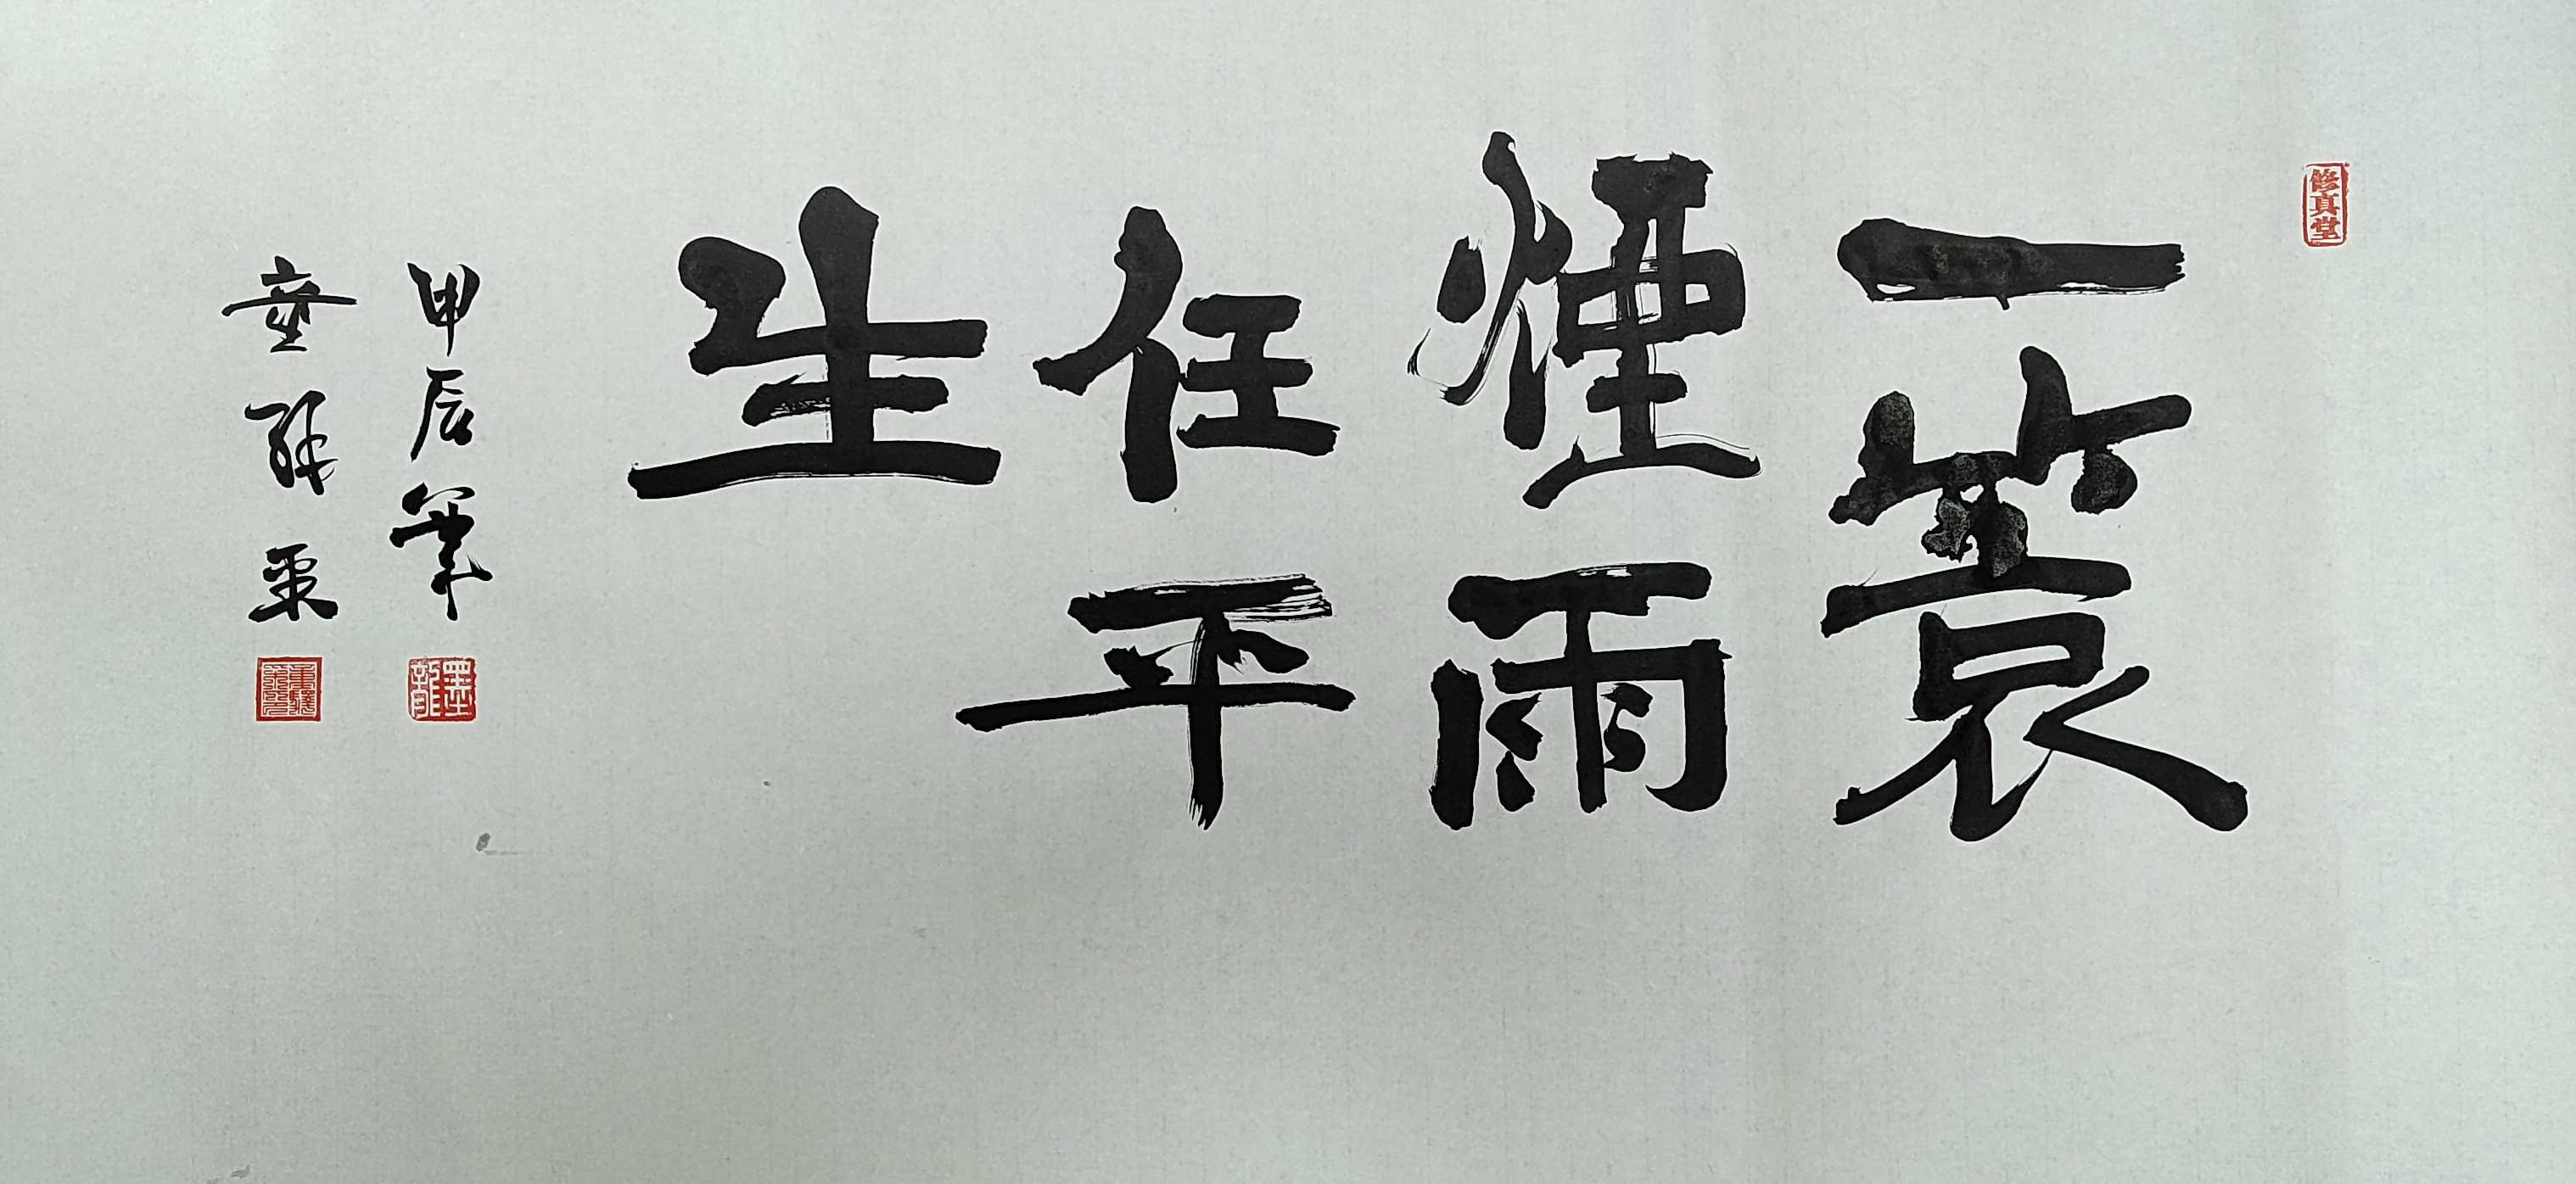 一蓑
煙雨
任平
生
甲辰
修真堂
墨龍